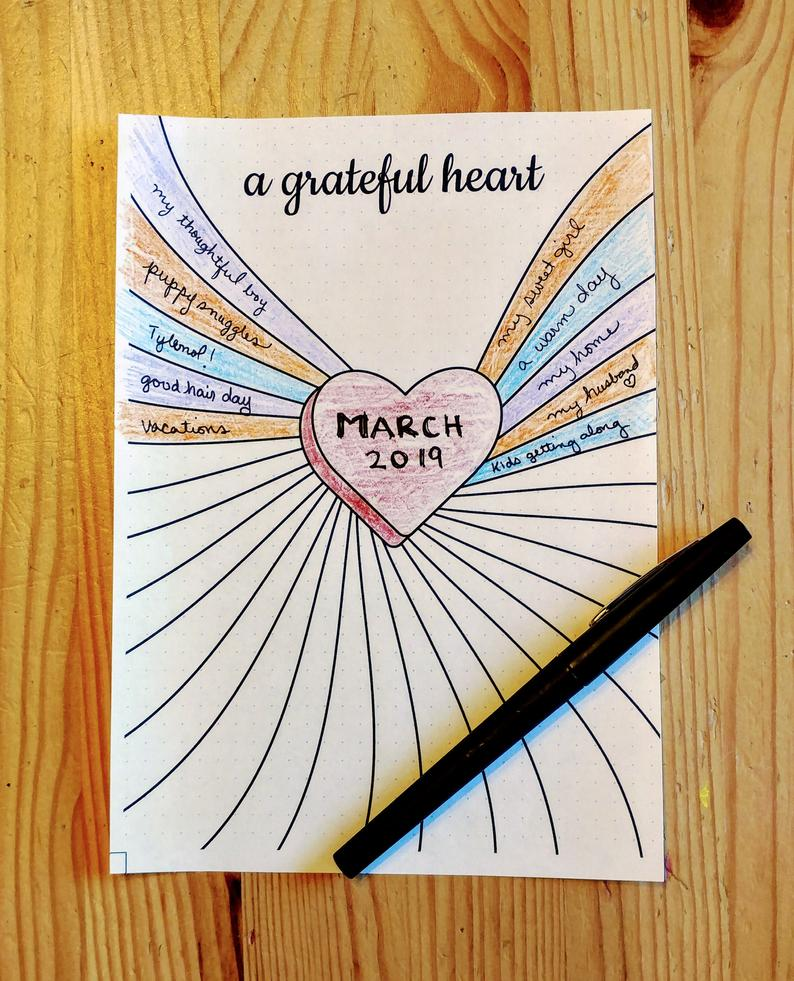 a grateful heart
my thoughtful boy
puppy snuggles
Tylenol!
good hair day
vacations
MARCH
2019
my sweet girl
a warm day
my home
my husband
kids getting along